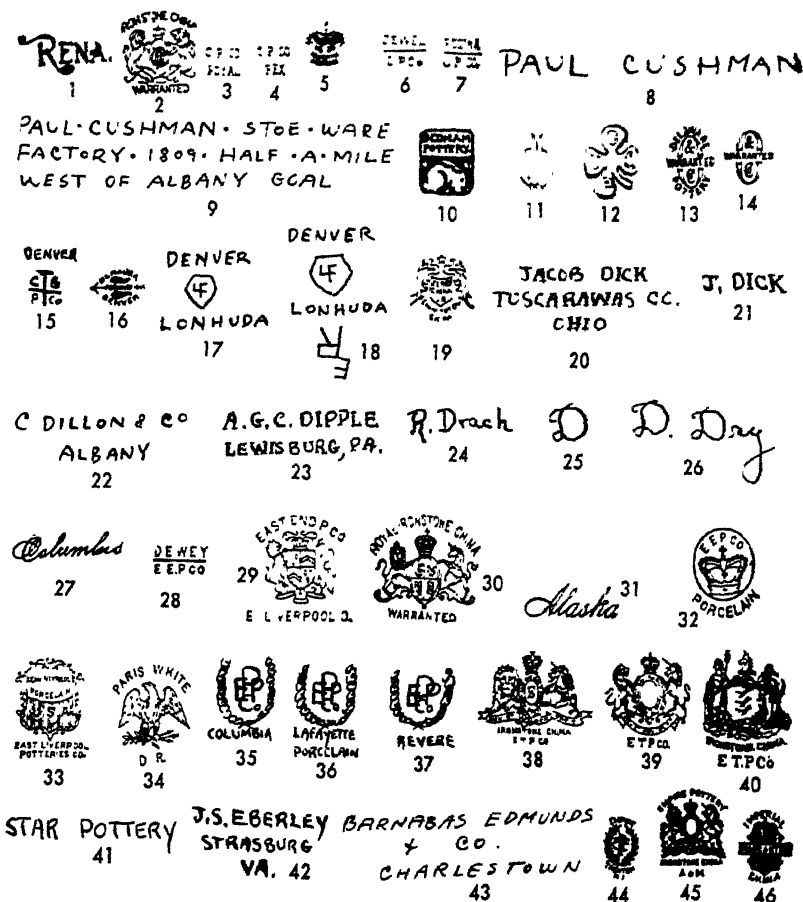 RENA.
1
IRONSTONE CHINA
WARRANTED
2
C.P.CO
ROYAL
3
C.P.CO
REX
4
5
DEWEY
C.P.Co
6
C.P.CO
7
PAUL CUSHMAN
8
PAUL·CUSHMAN·STOE·WARE
FACTORY·1809·HALF·A·MILE
WEST OF ALBANY GOAL
9
DEDHAM
POTTERY
10
11
12
DELAWARE
WARRANTED
POTTERY
13
WARRANTED
14
DENVER
C T G
P Co
15
DENVER
16
DENVER
LF
LONHUDA
17
DENVER
LF
LONHUDA
18
19
JACOB DICK
TUSCARAWAS CC.
CHIO
20
J, DICK
21
C DILLON & CO
ALBANY
22
A.G.C. DIPPLE
LEWISBURG, PA.
23
R. Drach
24
D
25
D. Dry
26
Columbus
27
DEWEY
E.E.P.CO
28
EAST END P.CO
E. LIVERPOOL O.
29
ROYAL IRONSTONE CHINA
WARRANTED
30
Alaska
31
E E P CO
PORCELAIN
32
PORCELAIN
EAST LIVERPOOL
POTTERIES CO.
33
PARIS WHITE
D. R.
34
EPCO
COLUMBIA
35
EPCO
LAFAYETTE
PORCELAIN
36
EPCO
REVERE
37
IRONSTONE CHINA
E T P CO
38
E T P CO.
39
IRONSTONE CHINA
E T. P Co
40
STAR POTTERY
41
J.S. EBERLEY
STRASBURG
VA.
42
BARNABAS EDMUNDS
& CO.
CHARLESTOWN
43
44
EMPIRE POTTERY
IRONSTONE CHINA
A & M
45
IMPERIAL
CHINA
46